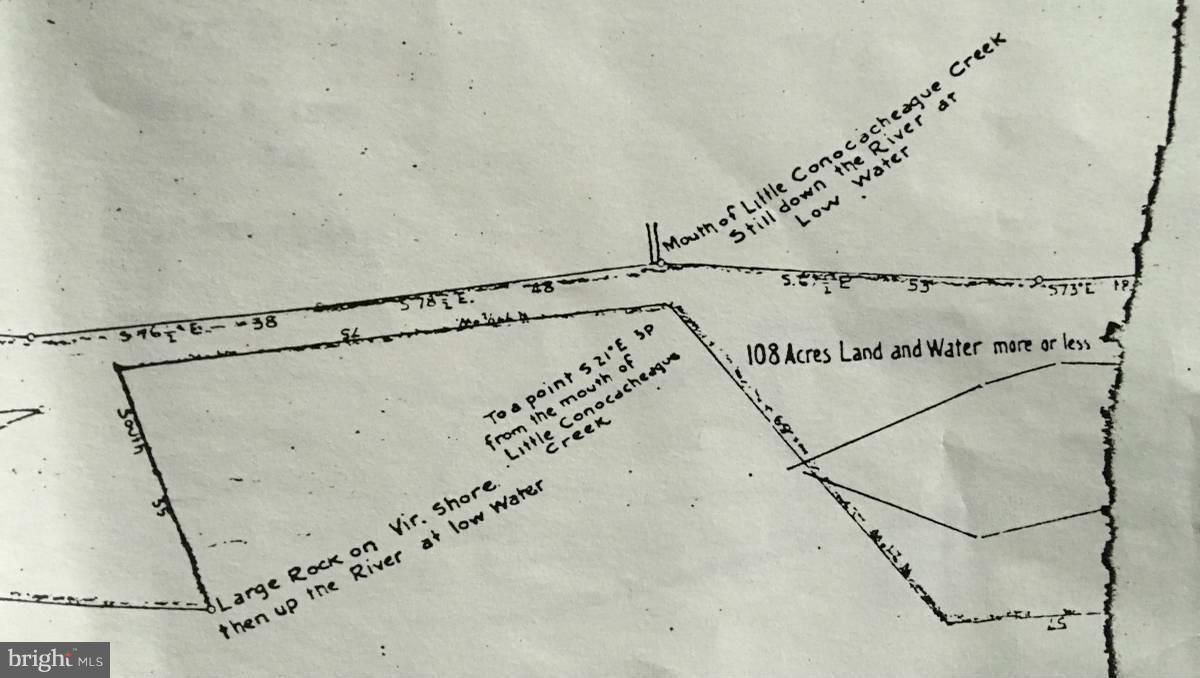 Mouth of Little Conocacheague Creek
Still down the River at
Low Water
S 76 ½° E. 38
S 78 ½ E.
48
S. 67 ½ E
53
S73°E
18
75
108 Acres Land and Water more or less
To a point S 21°E 3P
from the mouth of
Little Conocacheague
Creek
South
55
68
Large Rock on Vir. Shore.
then up the River at low Water
57
bright MLS